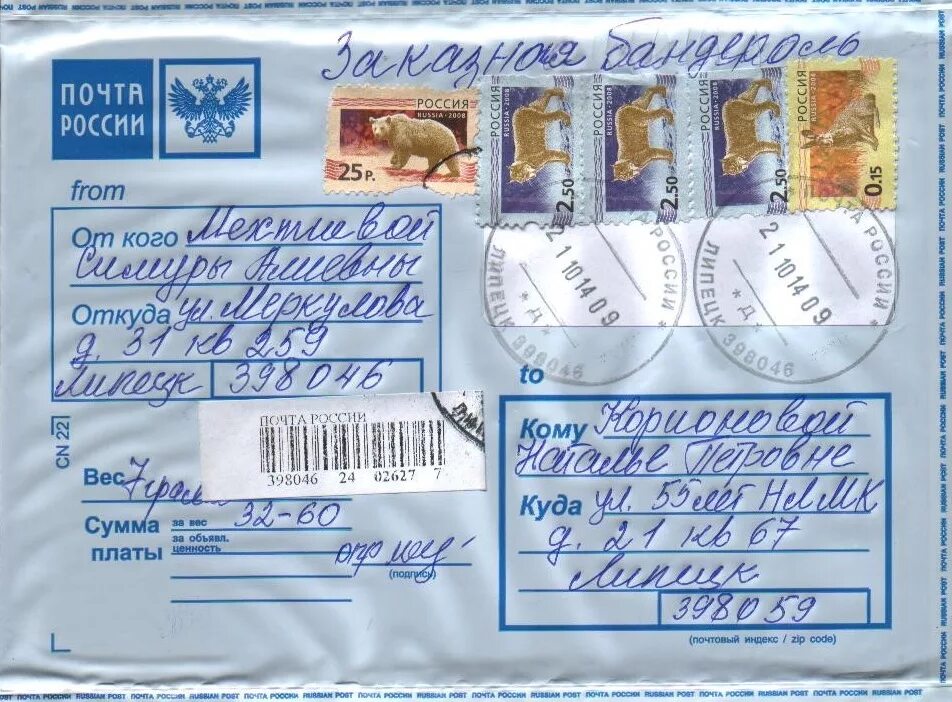 Заказная бандероль
ПОЧТА
РОССИИ
РОССИЯ
RUSSIA • 2008
25 р.
РОССИЯ
RUSSIA • 2008
2.50
РОССИЯ
RUSSIA • 2008
2.50
РОССИЯ
RUSSIA • 2008
2.50
РОССИЯ
RUSSIA • 2008
0.15
from
От кого Мехтиевой
Симуры Алиевны
Откуда ул. Меркулова
д. 31 кв 259
Липецк 398046
РОССИИ
ЛИПЕЦК
21 10 14 09
* Д *
398046
ПОЧТА РОССИИ *
ЛИПЕЦК
21 10 14 09
* Д *
398046
ПОЧТА РОССИИ
398046 24 02627 7
CN 22
Вес
Сумма
платы
за вес 32-60
за объявл.
ценность
(подпись)
to
Кому Корионовой
Наталье Петровне
Куда ул. 55 лет НЛМК
д. 21 кв 67
Липецк
398059
(почтовый индекс / zip code)
ПОЧТА РОССИИ RUSSIAN POST ПОЧТА РОССИИ RUSSIAN POST ПОЧТА РОССИИ RUSSIAN POST